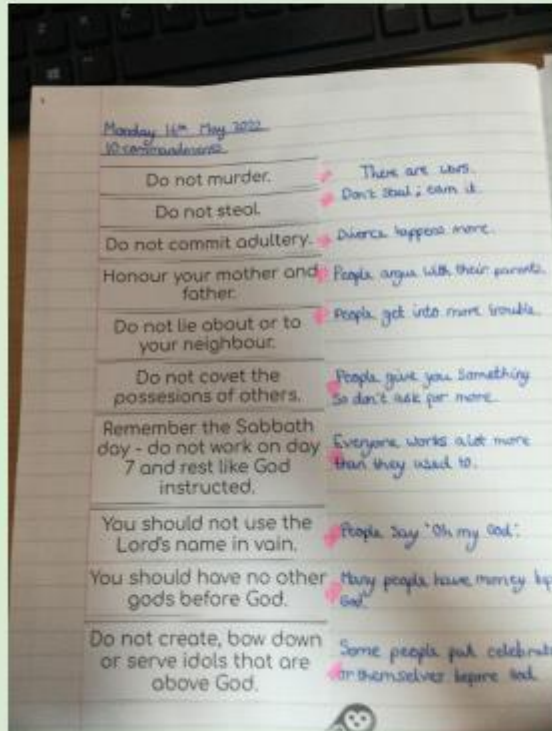 Monday 16th May 2022
10 commandments
Do not murder.
There are wars.
Do not steal.
Don't steal; earn it.
Do not commit adultery.
Divorce happens more.
Honour your mother and
father.
People argue with their parents.
Do not lie about or to
your neighbour.
People get into more trouble.
Do not covet the
possesions of others.
People give you something
so don't ask for more.
Remember the Sabbath
day - do not work on day
7 and rest like God
instructed.
Everyone works alot more
than they used to.
You should not use the
Lord's name in vain.
People say "Oh my God".
You should have no other
gods before God.
Many people have money
God.
Do not create, bow down
or serve idols that are
above God.
Some people put
or themselves before God.